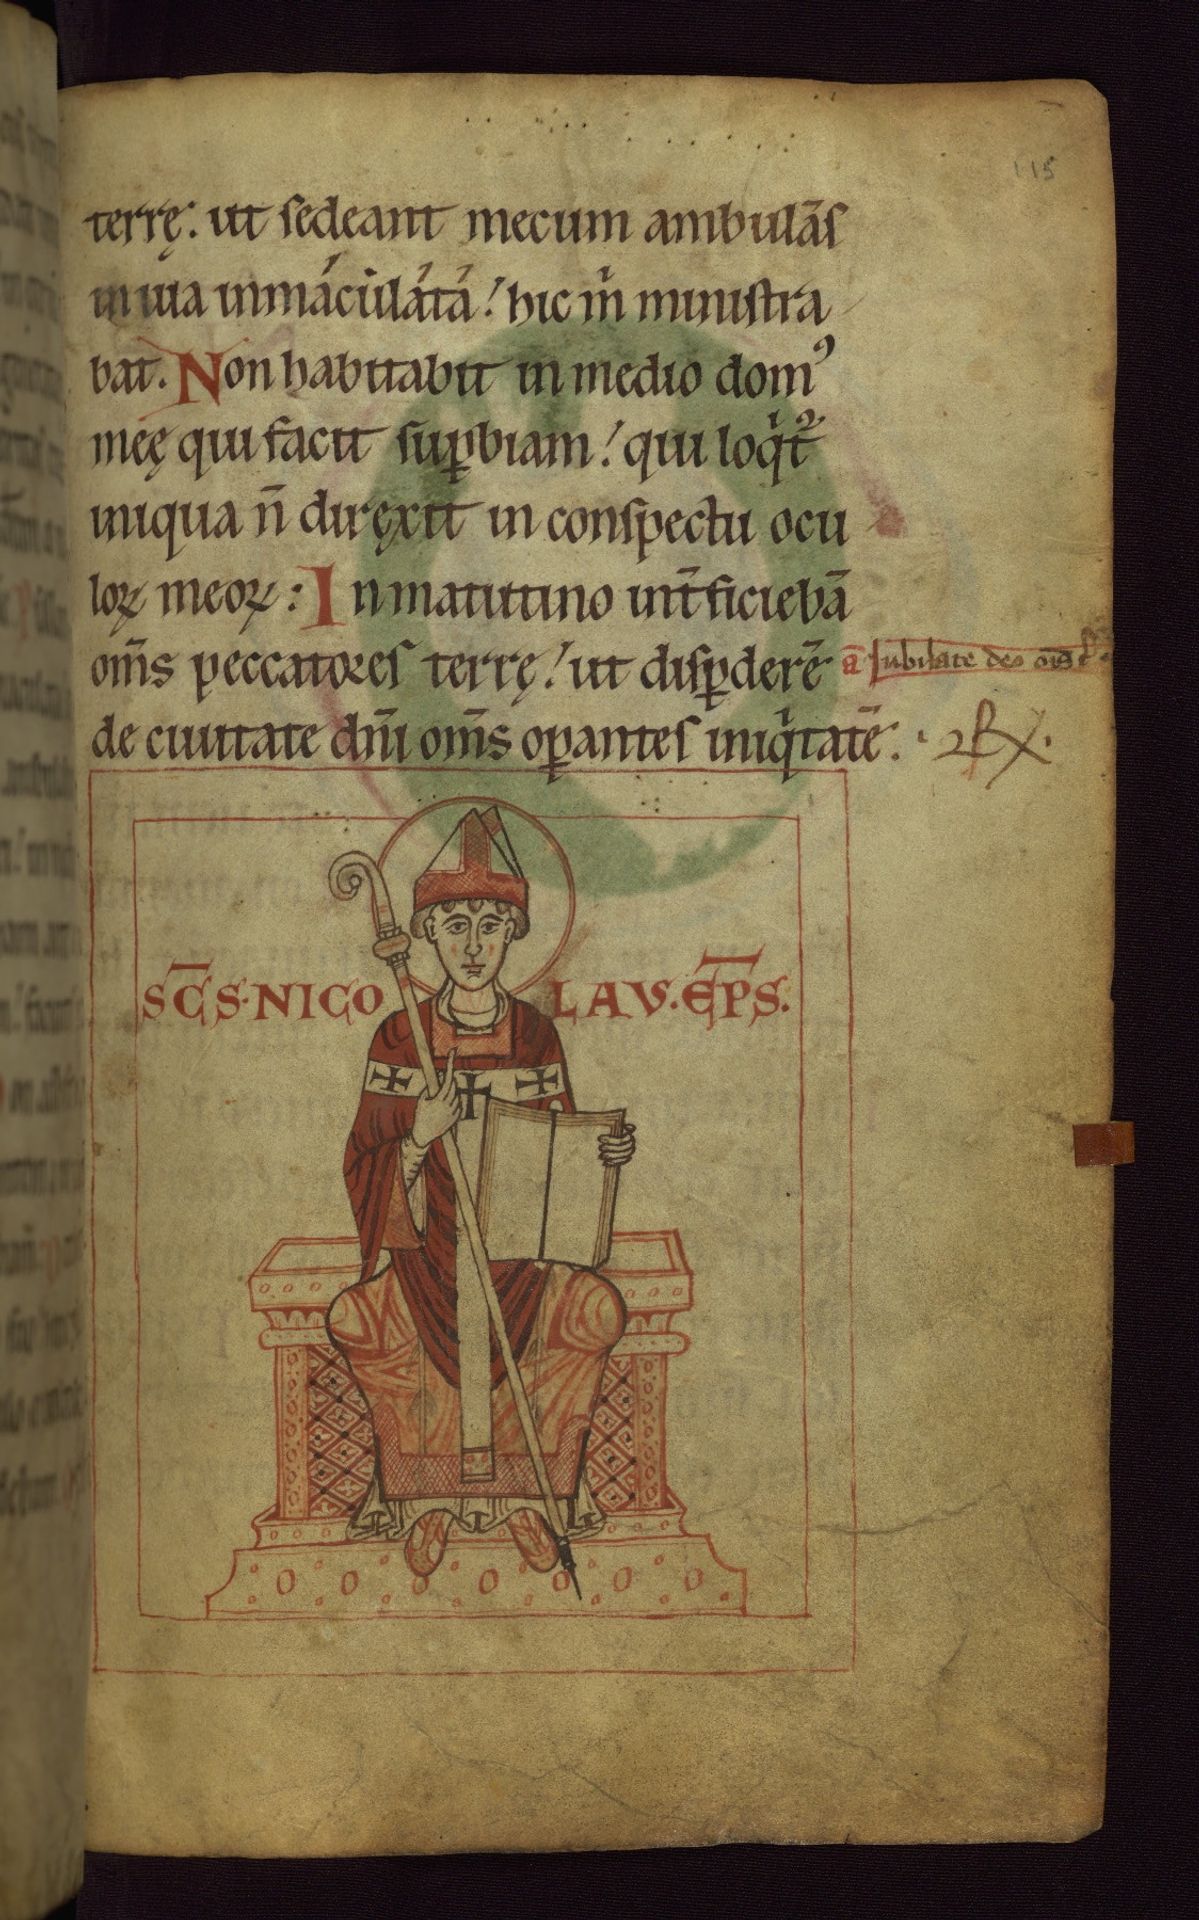 115
terrę. ut sedeant mecum ambulās
in uia inmáculátá! hic m̍ ministra
bat. Non habitabit in medio domꝰ
meę qui facit suꝑbiam! qui loqͥt᷑
iniqua n̄ diręxit in conspectu ocu
loꝝ meoꝝ: In matutino int̄ficiebā
om̄s peccatores terrę! ut disꝑderē
a᷑ Iubilate deo
de ciuitate dn̄i om̄s oꝑantes iniqͥtatē.
SC̄S·NICO LAV.EP̄S.